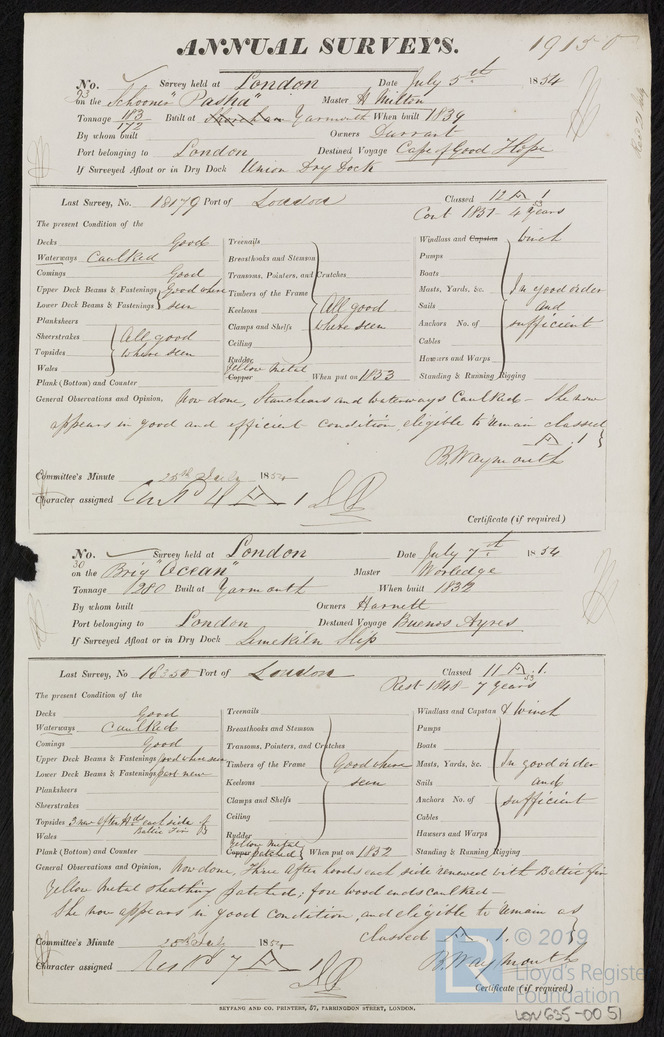 ANNUAL SURVEYS.
19150
No. 93 Survey held at London Date July 5th 1854
on the Schooner "Pasha" Master H Milton
Tonnage 183/172 Built at Yarmouth When built 1839
By whom built Owners Durrant
Port belonging to London Destined Voyage Cape of Good Hope
If Surveyed Afloat or in Dry Dock Union Dry Dock
Last Survey, No. 18179 Port of London Classed 12 A 1
53
Cont 1851 - 4 Years
The present Condition of the
Decks Good
Waterways Caulked
Comings Good
Upper Deck Beams & Fastenings Good where
Lower Deck Beams & Fastenings seen
Planksheers
Sheerstrakes All good
Topsides where seen
Wales
Plank (Bottom) and Counter
Treenails
Breasthooks and Stemson
Transoms, Pointers, and Crutches
Timbers of the Frame
Keelsons All good
Clamps and Shelfs where seen
Ceiling
Rudder
Yellow Metal
Copper When put on 1853
Windlass and Capstan Winch
Pumps
Boats
Masts, Yards, &c. In good order
Sails and
Anchors No. of sufficient
Cables
Hawsers and Warps
Standing & Running Rigging
General Observations and Opinion, Now done, Stancheons and Waterways Caulked - She now
appears in good and efficient condition, eligible to remain classed
A 1
B. Waymouth
Committee's Minute 25th July 1854
Character assigned Cont 4 A 1
Certificate (if required)
No. 30 Survey held at London Date July 7th 1854
on the Brig "Ocean" Master Worledge
Tonnage 280 Built at Yarmouth When built 1832
By whom built Owners Harnett
Port belonging to London Destined Voyage Buenos Ayres
If Surveyed Afloat or in Dry Dock Limekiln Slip
Last Survey, No 18350 Port of London Classed 11 A 1.
53
Rest 1848 - 7 Years
The present Condition of the
Decks Good
Waterways Caulked
Comings Good
Upper Deck Beams & Fastenings good where seen
Lower Deck Beams & Fastenings part new
Planksheers
Sheerstrakes
Topsides 3 new after Hds each side of
Wales Baltic Fir
Plank (Bottom) and Counter
Treenails
Breasthooks and Stemson
Transoms, Pointers, and Crutches
Timbers of the Frame Good where
Keelsons seen
Clamps and Shelfs
Ceiling
Rudder
Yellow Metal
Copper patched When put on 1852
Windlass and Capstan & Winch
Pumps
Boats
Masts, Yards, &c. In good order
Sails and
Anchors No. of sufficient
Cables
Hawsers and Warps
Standing & Running Rigging
General Observations and Opinion, Now done, Three after hoods each side renewed with Baltic Fir
Yellow Metal sheathing patched; fore wood ends caulked -
She now appears in good condition, and eligible to remain as
classed A 1.
B. Waymouth
Committee's Minute 25th July 1854
Character assigned Rest 7 A 1
Certificate (if required)
© 2019
Lloyd's Register
Foundation
LR
SEYFANG AND CO. PRINTERS, 57, FARRINGDON STREET, LONDON.
LON635-0051